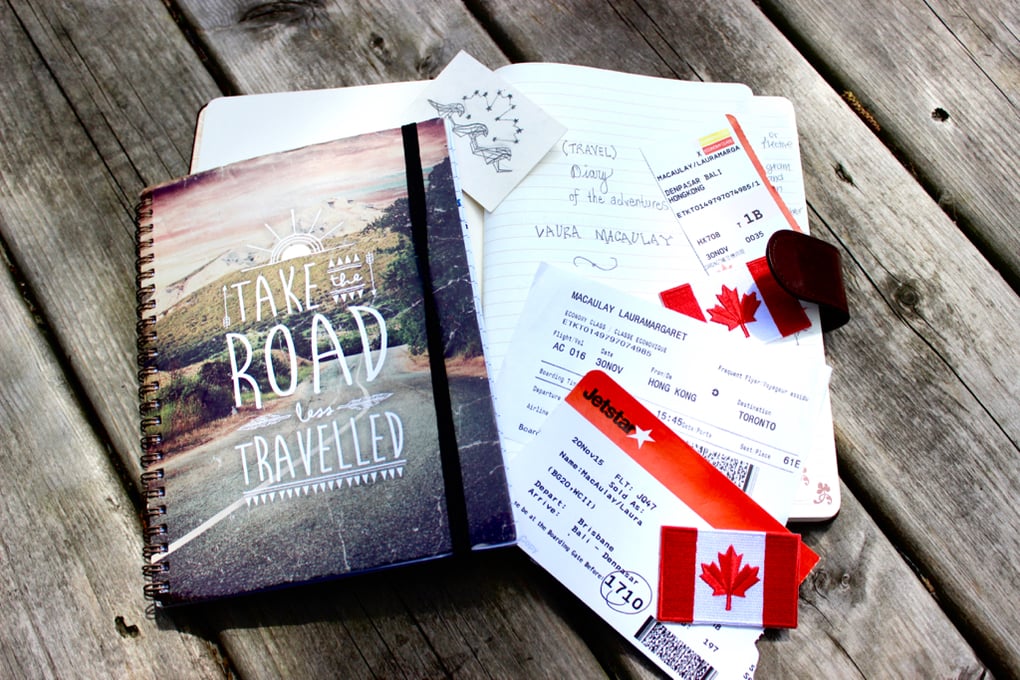 TAKE the
ROAD
less
TRAVELLED
(TRAVEL)
Diary
of the adventures
VAURA MACAULAY
or
MACAULAY/LAURAMARGA
DENPASAR BALI
HONGKONG
ETKT0149797074985/1
HX708 T 1B
30NOV 0035
MACAULAY LAURAMARGARET
ECONOMY CLASS / CLASSE ECONOMIQUE
ETKT0149797074985
Flight/Vol Date From/De Frequent Flyer Voyageur assidu
AC 016 30NOV HONG KONG Destination
TORONTO
Boarding
Departure 15:45 Seat Place
Airline 61E
Jetstar
20Nov15 FLT: JQ47
Sold As:
Name:MacAulay/Laura
(BG20.HCII)
Depart: Brisbane
Arrive: Bali - Denpasar
be at the Boarding Gate Before:
1710
197